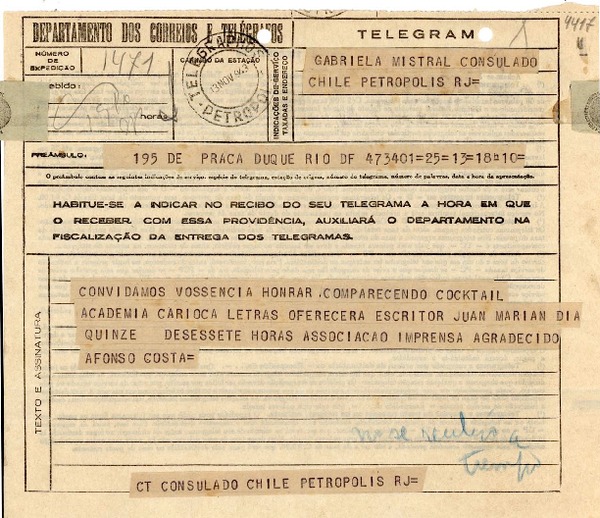 DEPARTAMENTO DOS CORREIOS E TELÉGRAFOS
TELEGRAMA
4417
NÚMERO DE EXPEDIÇÃO
1471
CARIMBO DA ESTAÇÃO
TELEGRAPHOS
13 NOV
PETROPOLIS
INDICAÇÕES DE SERVIÇO TAXADAS E ENDEREÇO
GABRIELA MISTRAL CONSULADO
CHILE PETROPOLIS RJ=
horas
PREÂMBULO:
195 DE PRACA DUQUE RIO DF 473401=25=13=18 10=
O preâmbulo contém as seguintes indicações de serviço: espécie do telegrama, estação de origem, número do telegrama, número de palavras, data e hora da apresentação.
HABITUE-SE A INDICAR NO RECIBO DO SEU TELEGRAMA A HORA EM QUE
O RECEBER. COM ESSA PROVIDÊNCIA, AUXILIARÁ O DEPARTAMENTO NA
FISCALIZAÇÃO DA ENTREGA DOS TELEGRAMAS.
TEXTO E ASSINATURA
CONVIDAMOS VOSSENCIA HONRAR COMPARECENDO COCKTAIL
ACADEMIA CARIOCA LETRAS OFERECERA ESCRITOR JUAN MARIAN DIA
QUINZE DESESSETE HORAS ASSOCIACAO IMPRENSA AGRADECIDO
AFONSO COSTA=
no se recibió a
tiempo
CT CONSULADO CHILE PETROPOLIS RJ=